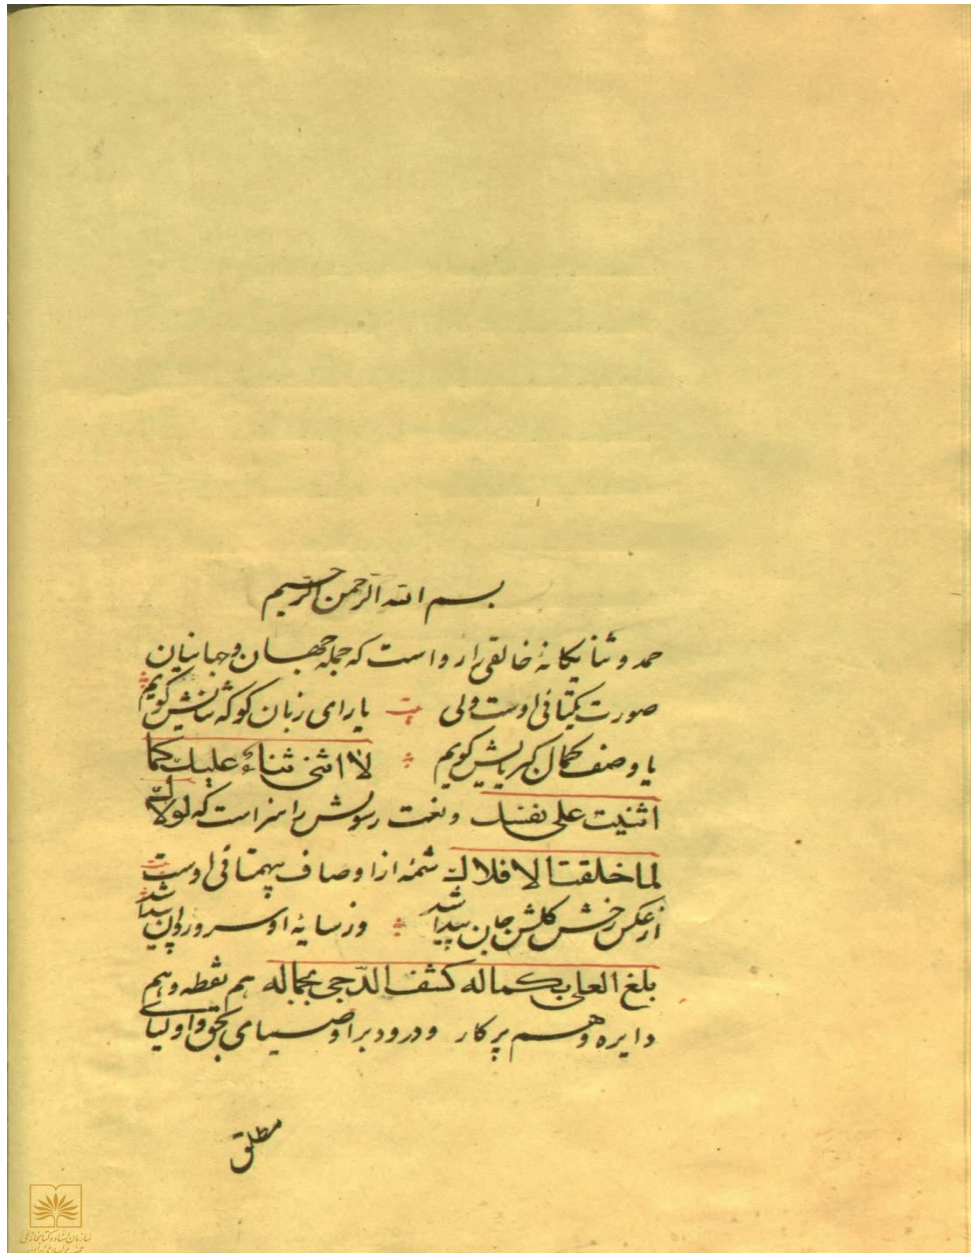 بسم الله الرحمن الرحیم
حمد و ثنا یگانه خالقی را رواست که جمله جهان و جهانیان
صورت یکتائی اوست ولی بیت یارای زبان کو که ثنایش گویم
یا وصف کمال کبریایش گویم لا اثنی ثناء علیک کما
اثنیت علی نفسک و نعت رسولش را سزاست که لولاک
لما خلقت الافلاک شمه از اوصاف بیهمتائی اوست بیت
از عکس رخش گلشن جان پیدا شد وز سایه او سرو روان پیدا شد
بلغ العلی بکماله کشف الدجی بجماله هم نقطه و هم
دایره و هم پرکار و درود بر اوصیای بحق و اولیای
مطلق
سازمان اسناد و کتابخانه ملی
جمهوری اسلامی ایران